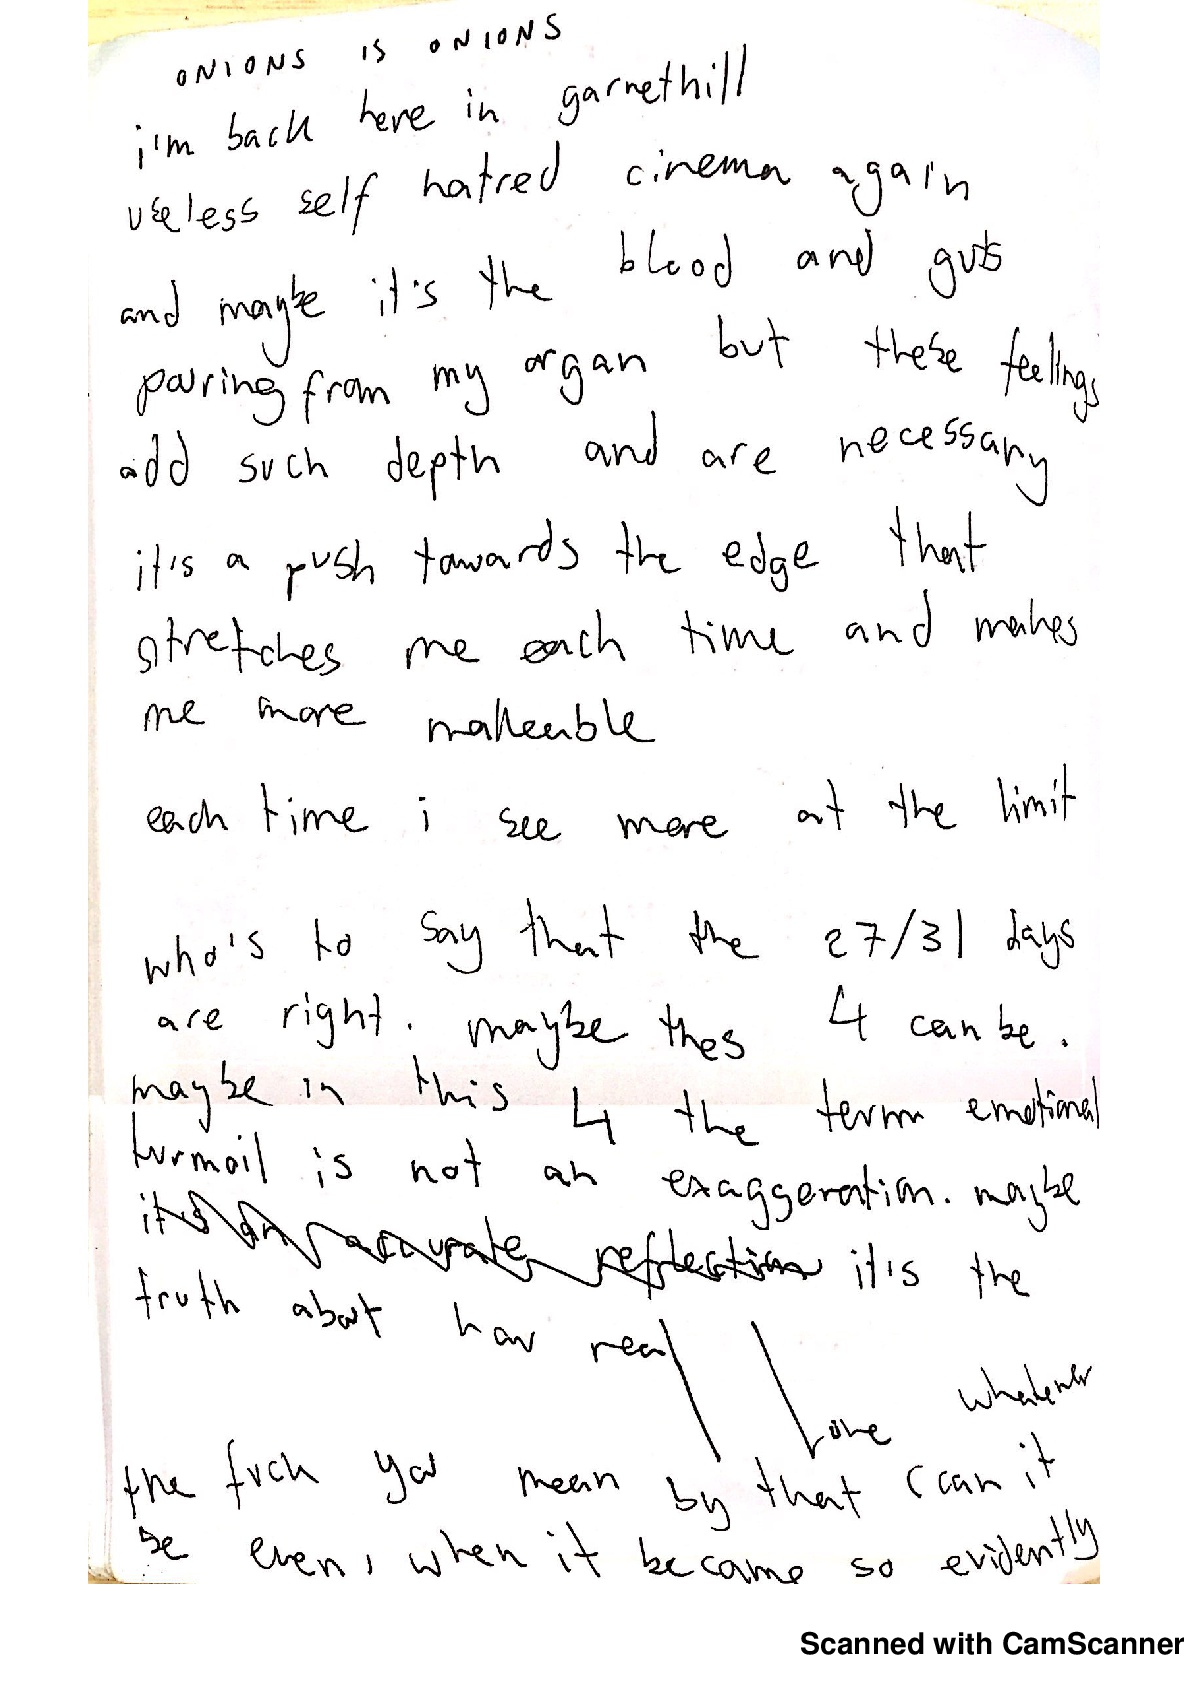 ONIONS IS ONIONS
i'm back here in garnethill
useless self hatred cinema again
and maybe it's the blood and guts
pouring from my organ but these feelings
add such depth and are necessary
it's a push towards the edge that
stretches me each time and makes
me more malleable
each time i see more at the limit
who's to say that the 27/31 days
are right. maybe thes 4 can be.
maybe in this 4 the term emotional
turmoil is not an exaggeration. maybe
it's an accurate reflection it's the
truth about how real
love whatever
the fuck you mean by that (can it
be even, when it became so evidently
Scanned with CamScanner